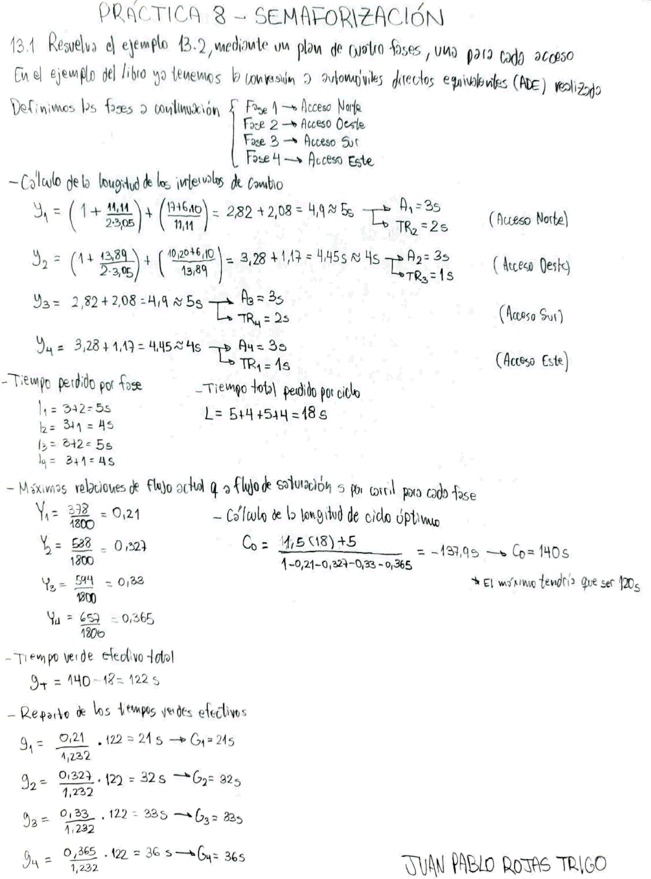 PRÁCTICA 8 - SEMAFORIZACIÓN
13.1 Resuelva el ejemplo 13.2, mediante un plan de cuatro fases, una para cada acceso
En el ejemplo del libro ya tenemos la conversión a automóviles directos equivalentes (ADE) realizada
Definimos las fases a continuación { Fase 1 → Acceso Norte
Fase 2 → Acceso Oeste
Fase 3 → Acceso Sur
Fase 4 → Acceso Este
- Cálculo de la longitud de los intervalos de cambio
y1 = (1 + 11,11/2·3,05) + (17+6,10/11,11) = 2,82 + 2,08 = 4,9 ≈ 5s → A1 = 3s
→ TR2 = 2s (Acceso Norte)
y2 = (1 + 13,89/2·3,05) + (10,20+6,10/13,89) = 3,28 + 1,17 = 4,45s ≈ 4s → A2 = 3s
→ TR3 = 1s (Acceso Oeste)
y3 = 2,82 + 2,08 = 4,9 ≈ 5s → A3 = 3s
→ TR4 = 2s (Acceso Sur)
y4 = 3,28 + 1,17 = 4,45 ≈ 4s → A4 = 3s
→ TR1 = 1s (Acceso Este)
- Tiempo perdido por fase
l1 = 3+2 = 5s
l2 = 3+1 = 4s
l3 = 3+2 = 5s
l4 = 3+1 = 4s
- Tiempo total perdido por ciclo
L = 5+4+5+4 = 18 s
- Máximas relaciones de flujo actual q a flujo de saturación s por carril para cada fase
Y1 = 378/1800 = 0,21
Y2 = 588/1800 = 0,327
Y3 = 594/1800 = 0,33
Y4 = 657/1800 = 0,365
- Cálculo de la longitud de ciclo óptimo
Co = 1,5(18)+5 / 1-0,21-0,327-0,33-0,365 = -137,9s → Co = 140s
* El máximo tendría que ser 120s
- Tiempo verde efectivo total
gT = 140 - 18 = 122 s
- Reparto de los tiempos verdes efectivos
g1 = 0,21/1,232 · 122 = 21 s → G1 = 21s
g2 = 0,327/1,232 · 122 = 32 s → G2 = 32s
g3 = 0,33/1,232 · 122 = 33s → G3 = 33s
g4 = 0,365/1,232 · 122 = 36 s → G4 = 36s
JUAN PABLO ROJAS TRIGO